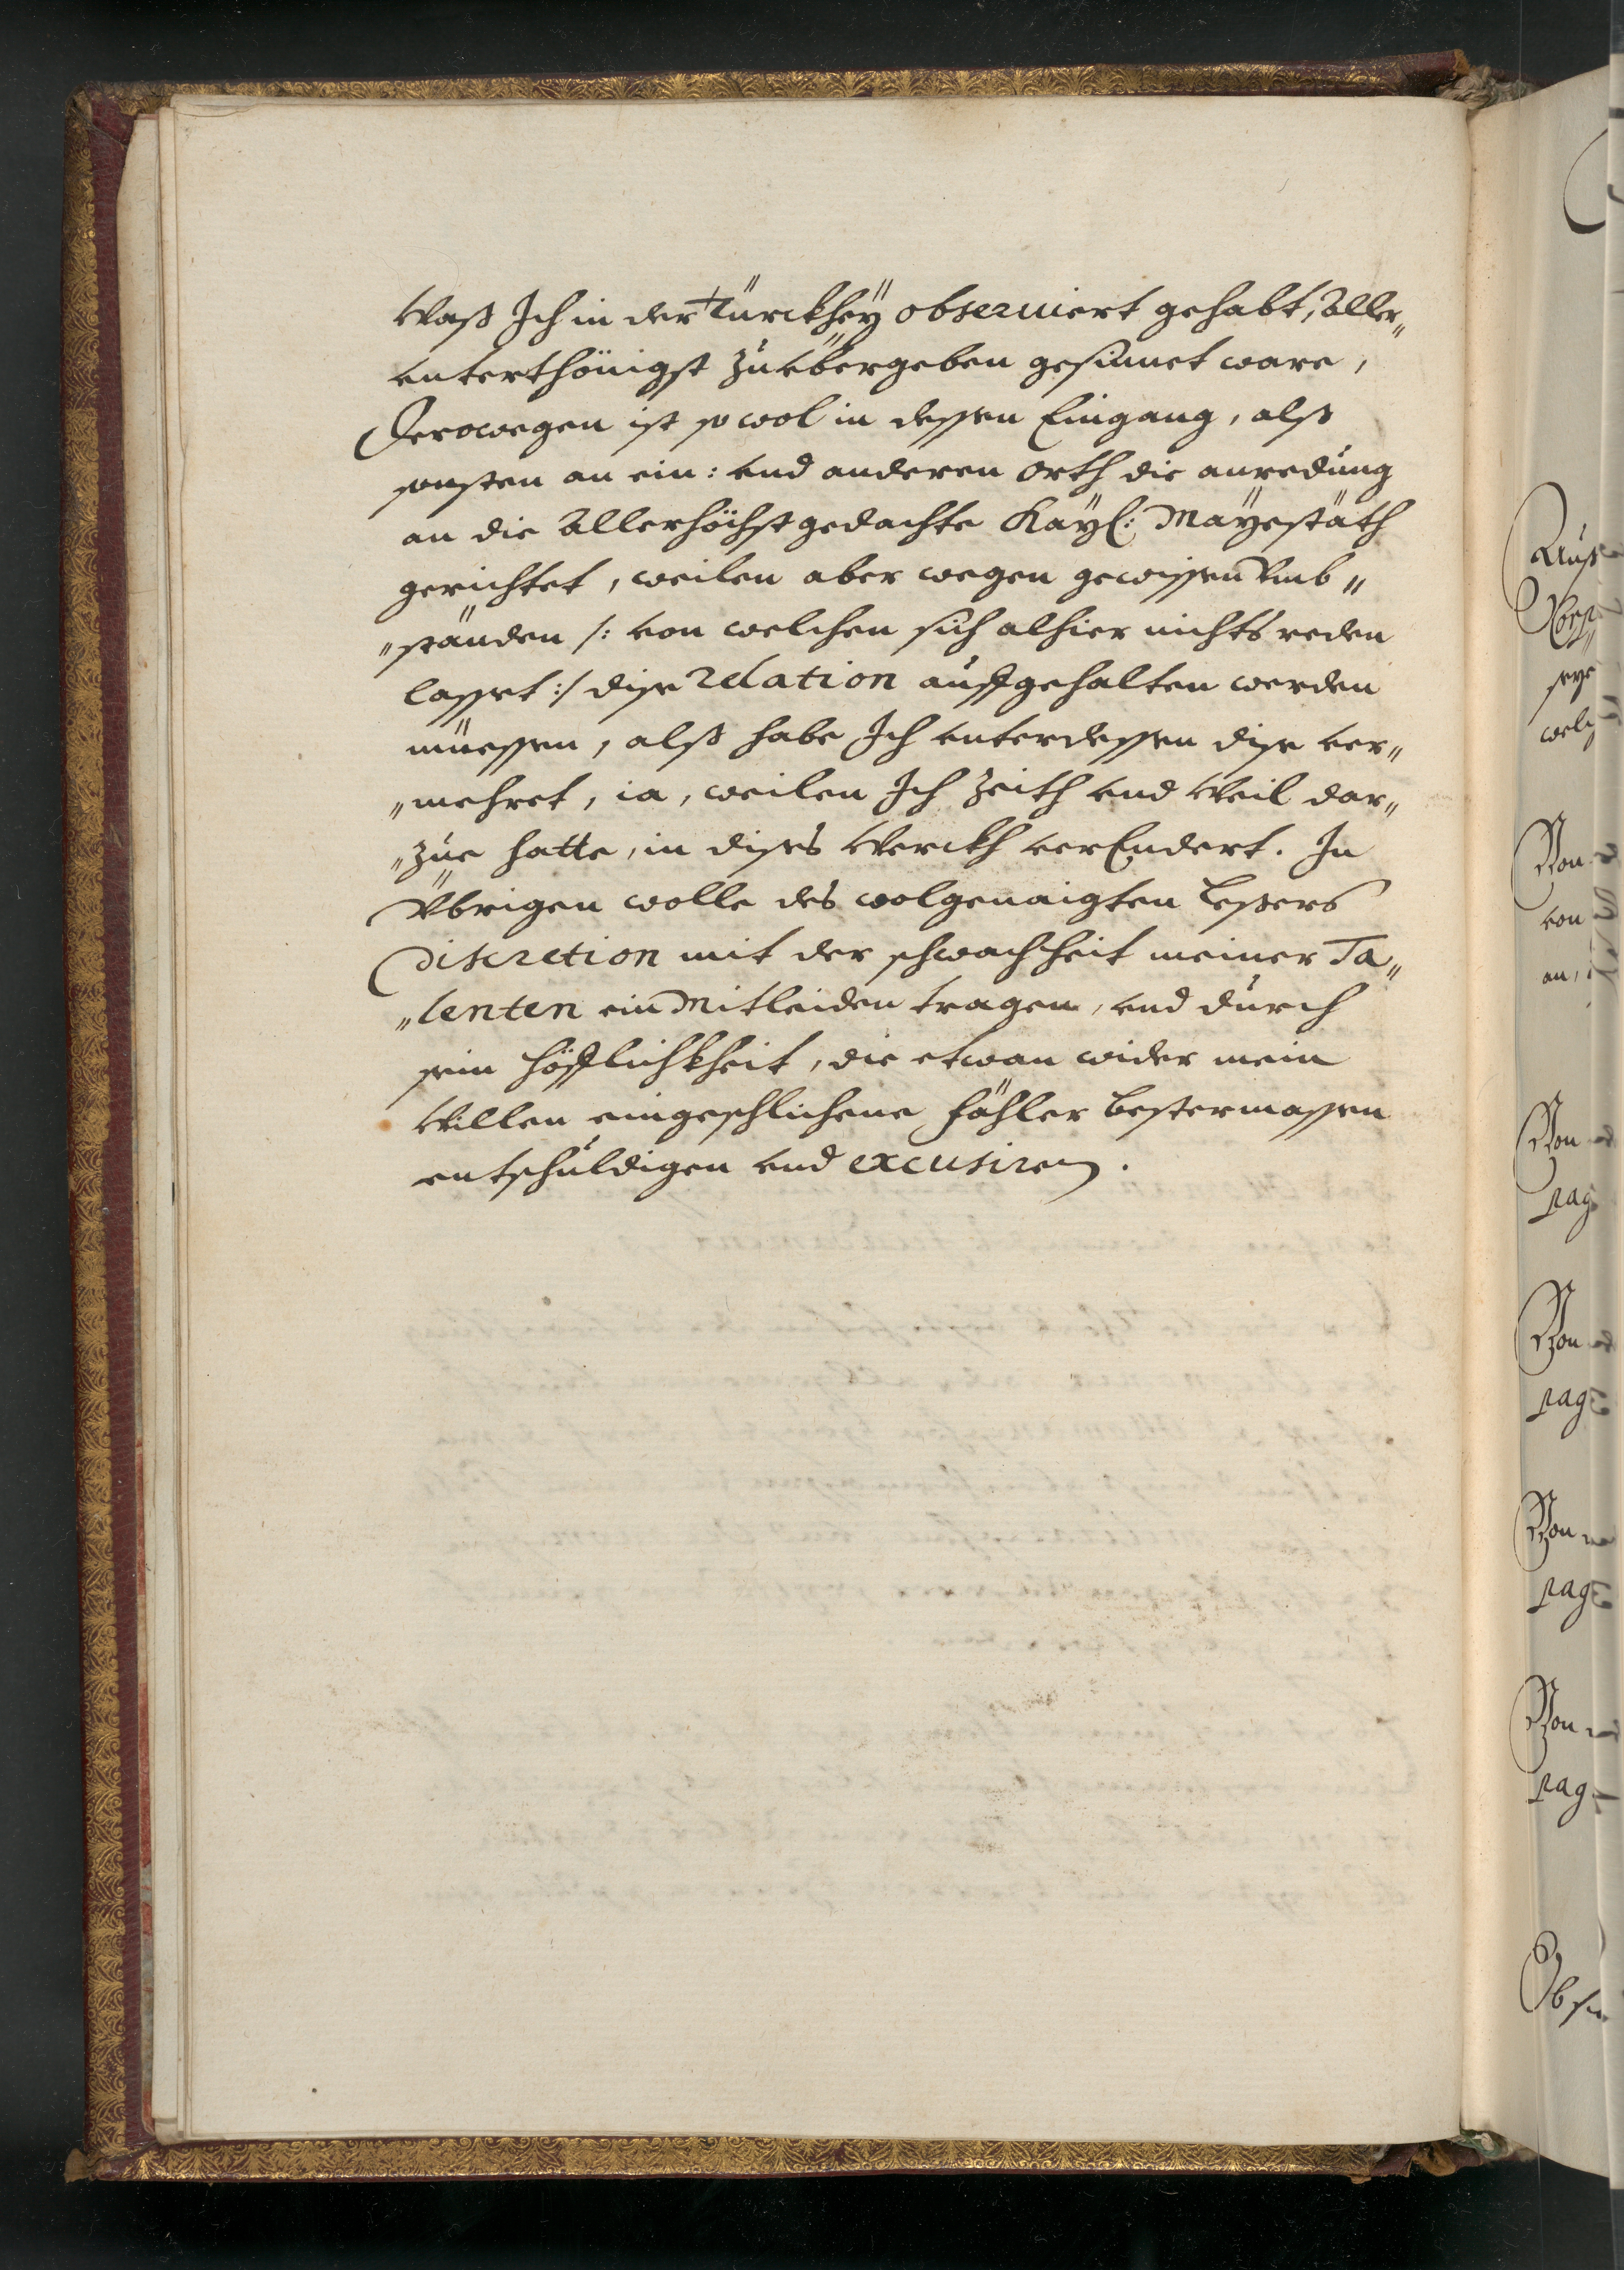 Waß Ich in der Türckheÿ obseruiert gehabt, aller„
vnterthönigst zu vbergeben gesinnet ware,
Derowegen ist so wol in dessen Eingang, alß
sonsten an ein: vnd anderen Orth die anredung
an die Allerhöchstgedachte Kaÿl: Maÿestäth
gerichtet, weilen aber wegen gewissen Vmb„
„ständen /: von welchen sich alhier nichts reden
lasset :/ dise relation auffgehalten werden
müessen, alß habe Ich vnterdessen dise ver„
„mehret, ia, weilen Ich Zeith vnd Weil dar„
„zue hatte, in dises Werckh verEndert. In
Übrigen wolle des wolgenaigten Lesers
Discretion mit der schwachheit meiner Ta„
„lenten ein Mitleiden tragen, vnd durch
sein höfflichkheit, die etwan wider mein
Willen eingeschlichene fähler bestermassen
entschuldigen vnd excusiren.
Von
von
an,
Von
pag
Von
pag
Von
pag
Von
pag